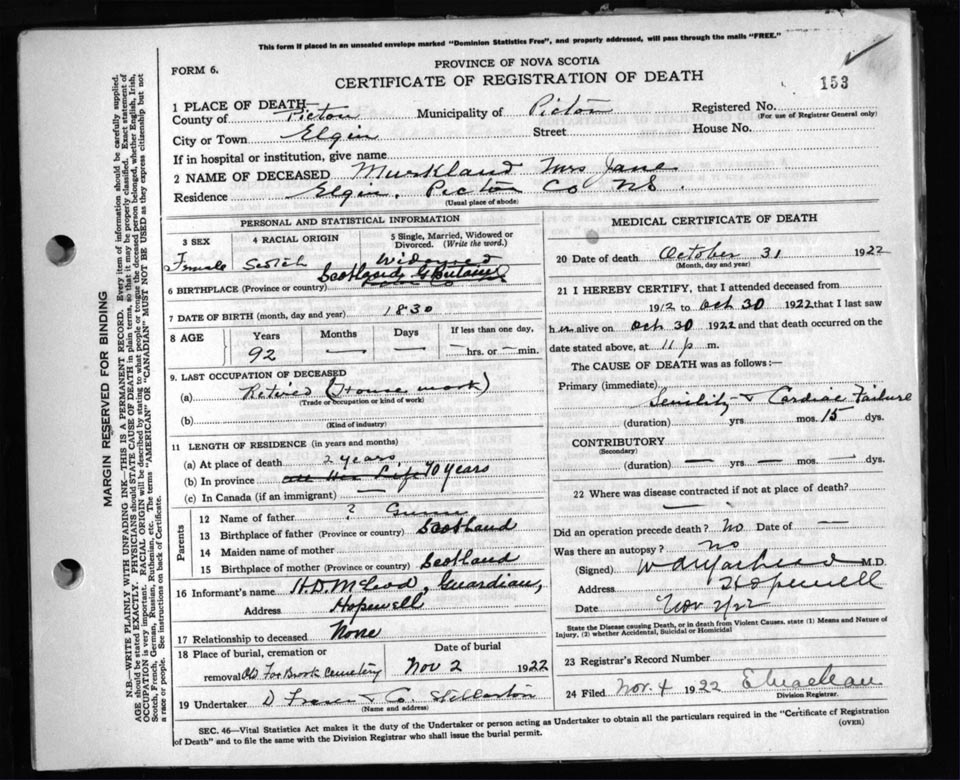 This form if placed in an unsealed envelope marked "Dominion Statistics Free", and properly addressed, will pass through the mails "FREE."
FORM 6.
PROVINCE OF NOVA SCOTIA
CERTIFICATE OF REGISTRATION OF DEATH
153
1 PLACE OF DEATH—
County of Pictou Municipality of Pictou Registered No.
(For use of Registrar General only)
City or Town Elgin Street House No.
If in hospital or institution, give name
2 NAME OF DECEASED Murkland Mrs Jane
Residence Elgin, Pictou Co NS.
(Usual place of abode)
PERSONAL AND STATISTICAL INFORMATION
3 SEX Female
4 RACIAL ORIGIN Scotch
5 Single, Married, Widowed or Divorced. (Write the word.) Widowed
6 BIRTHPLACE (Province or country) Scotland, G Britain
7 DATE OF BIRTH (month, day and year) 1830
8 AGE Years Months Days If less than one day,
92 — — — hrs. or — min.
9. LAST OCCUPATION OF DECEASED
(a) Retired (House work)
(Trade or occupation or kind of work)
(b)
(Kind of industry)
11 LENGTH OF RESIDENCE (in years and months)
(a) At place of death 2 years,
(b) In province all Her Life 70 years
(c) In Canada (if an immigrant) —
Parents
12 Name of father ? Gunn
13 Birthplace of father (Province or country) Scotland
14 Maiden name of mother
15 Birthplace of mother (Province or country) Scotland
16 Informant's name H.D. McLeod, Guardian,
Address Hopewell
17 Relationship to deceased None
18 Place of burial, cremation or removal Old Fox Brook Cemetery
Date of burial Nov 2 1922
19 Undertaker D Fraser & Co. Stellarton
(Name and address)
MEDICAL CERTIFICATE OF DEATH
20 Date of death October 31 1922
(Month, day and year)
21 I HEREBY CERTIFY, that I attended deceased from
1912 to Oct 30 1922 that I last saw
her alive on Oct 30 1922 and that death occurred on the
date stated above, at 11 p m.
The CAUSE OF DEATH was as follows:—
Primary (immediate) Senility & Cardiac Failure
(duration) yrs. mos. 15 dys.
CONTRIBUTORY
(Secondary)
(duration) — yrs — mos. — dys.
22 Where was disease contracted if not at place of death?
—
Did an operation precede death? No Date of —
Was there an autopsy? no
(Signed) M.D.
Address Hopewell
Date Nov 2/22
State the Disease causing Death, or in death from Violent Causes, state (1) Means and Nature of
Injury, (2) whether Accidental, Suicidal or Homicidal
23 Registrar's Record Number
24 Filed Nov. 4 1922
Division Registrar.
SEC. 46—Vital Statistics Act makes it the duty of the Undertaker or person acting as Undertaker to obtain all the particulars required in the "Certificate of Registration
of Death" and to file the same with the Division Registrar who shall issue the burial permit.
(OVER)
MARGIN RESERVED FOR BINDING
N.B.—WRITE PLAINLY WITH UNFADING INK—THIS IS A PERMANENT RECORD. Every item of information should be carefully supplied.
AGE should be stated EXACTLY. PHYSICIANS should STATE CAUSE OF DEATH in plain terms, so that it may be properly classified. Exact statement of
OCCUPATION is very important. RACIAL ORIGIN will be described by stating to what people or tongue the deceased person belonged, whether English, Irish,
Scotch, French, German, Russian, Ruthenian, etc. The terms "AMERICAN" or "CANADIAN" MUST NOT BE USED as they express citizenship but not
a race or people. See instructions on back of Certificate.